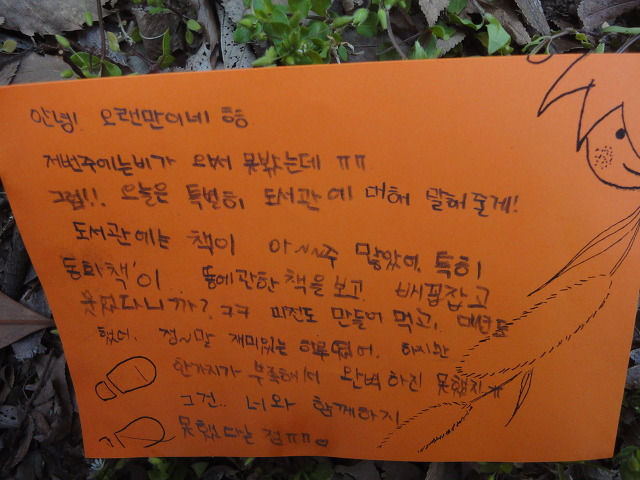 안녕! 오랜만이네 ㅎㅎ
저번주에는 비가 와서 못봤는데 ㅠㅠ
그럼!! 오늘은 특별히 도서관에 대해 말해줄게!
도서관에는 책이 아~~주 많았어. 특히
동화책이.. 똥에관한 책을 보고 배꼽잡고
웃었다니까? ㅋㅋ 파전도 만들어 먹고,
했어. 정~말 재미있는 하루였어. 하지만
한가지가 부족해서 완벽하진 못했지ㅠ
그건.. 너와 함께하지
못했다는 점ㅠㅠ